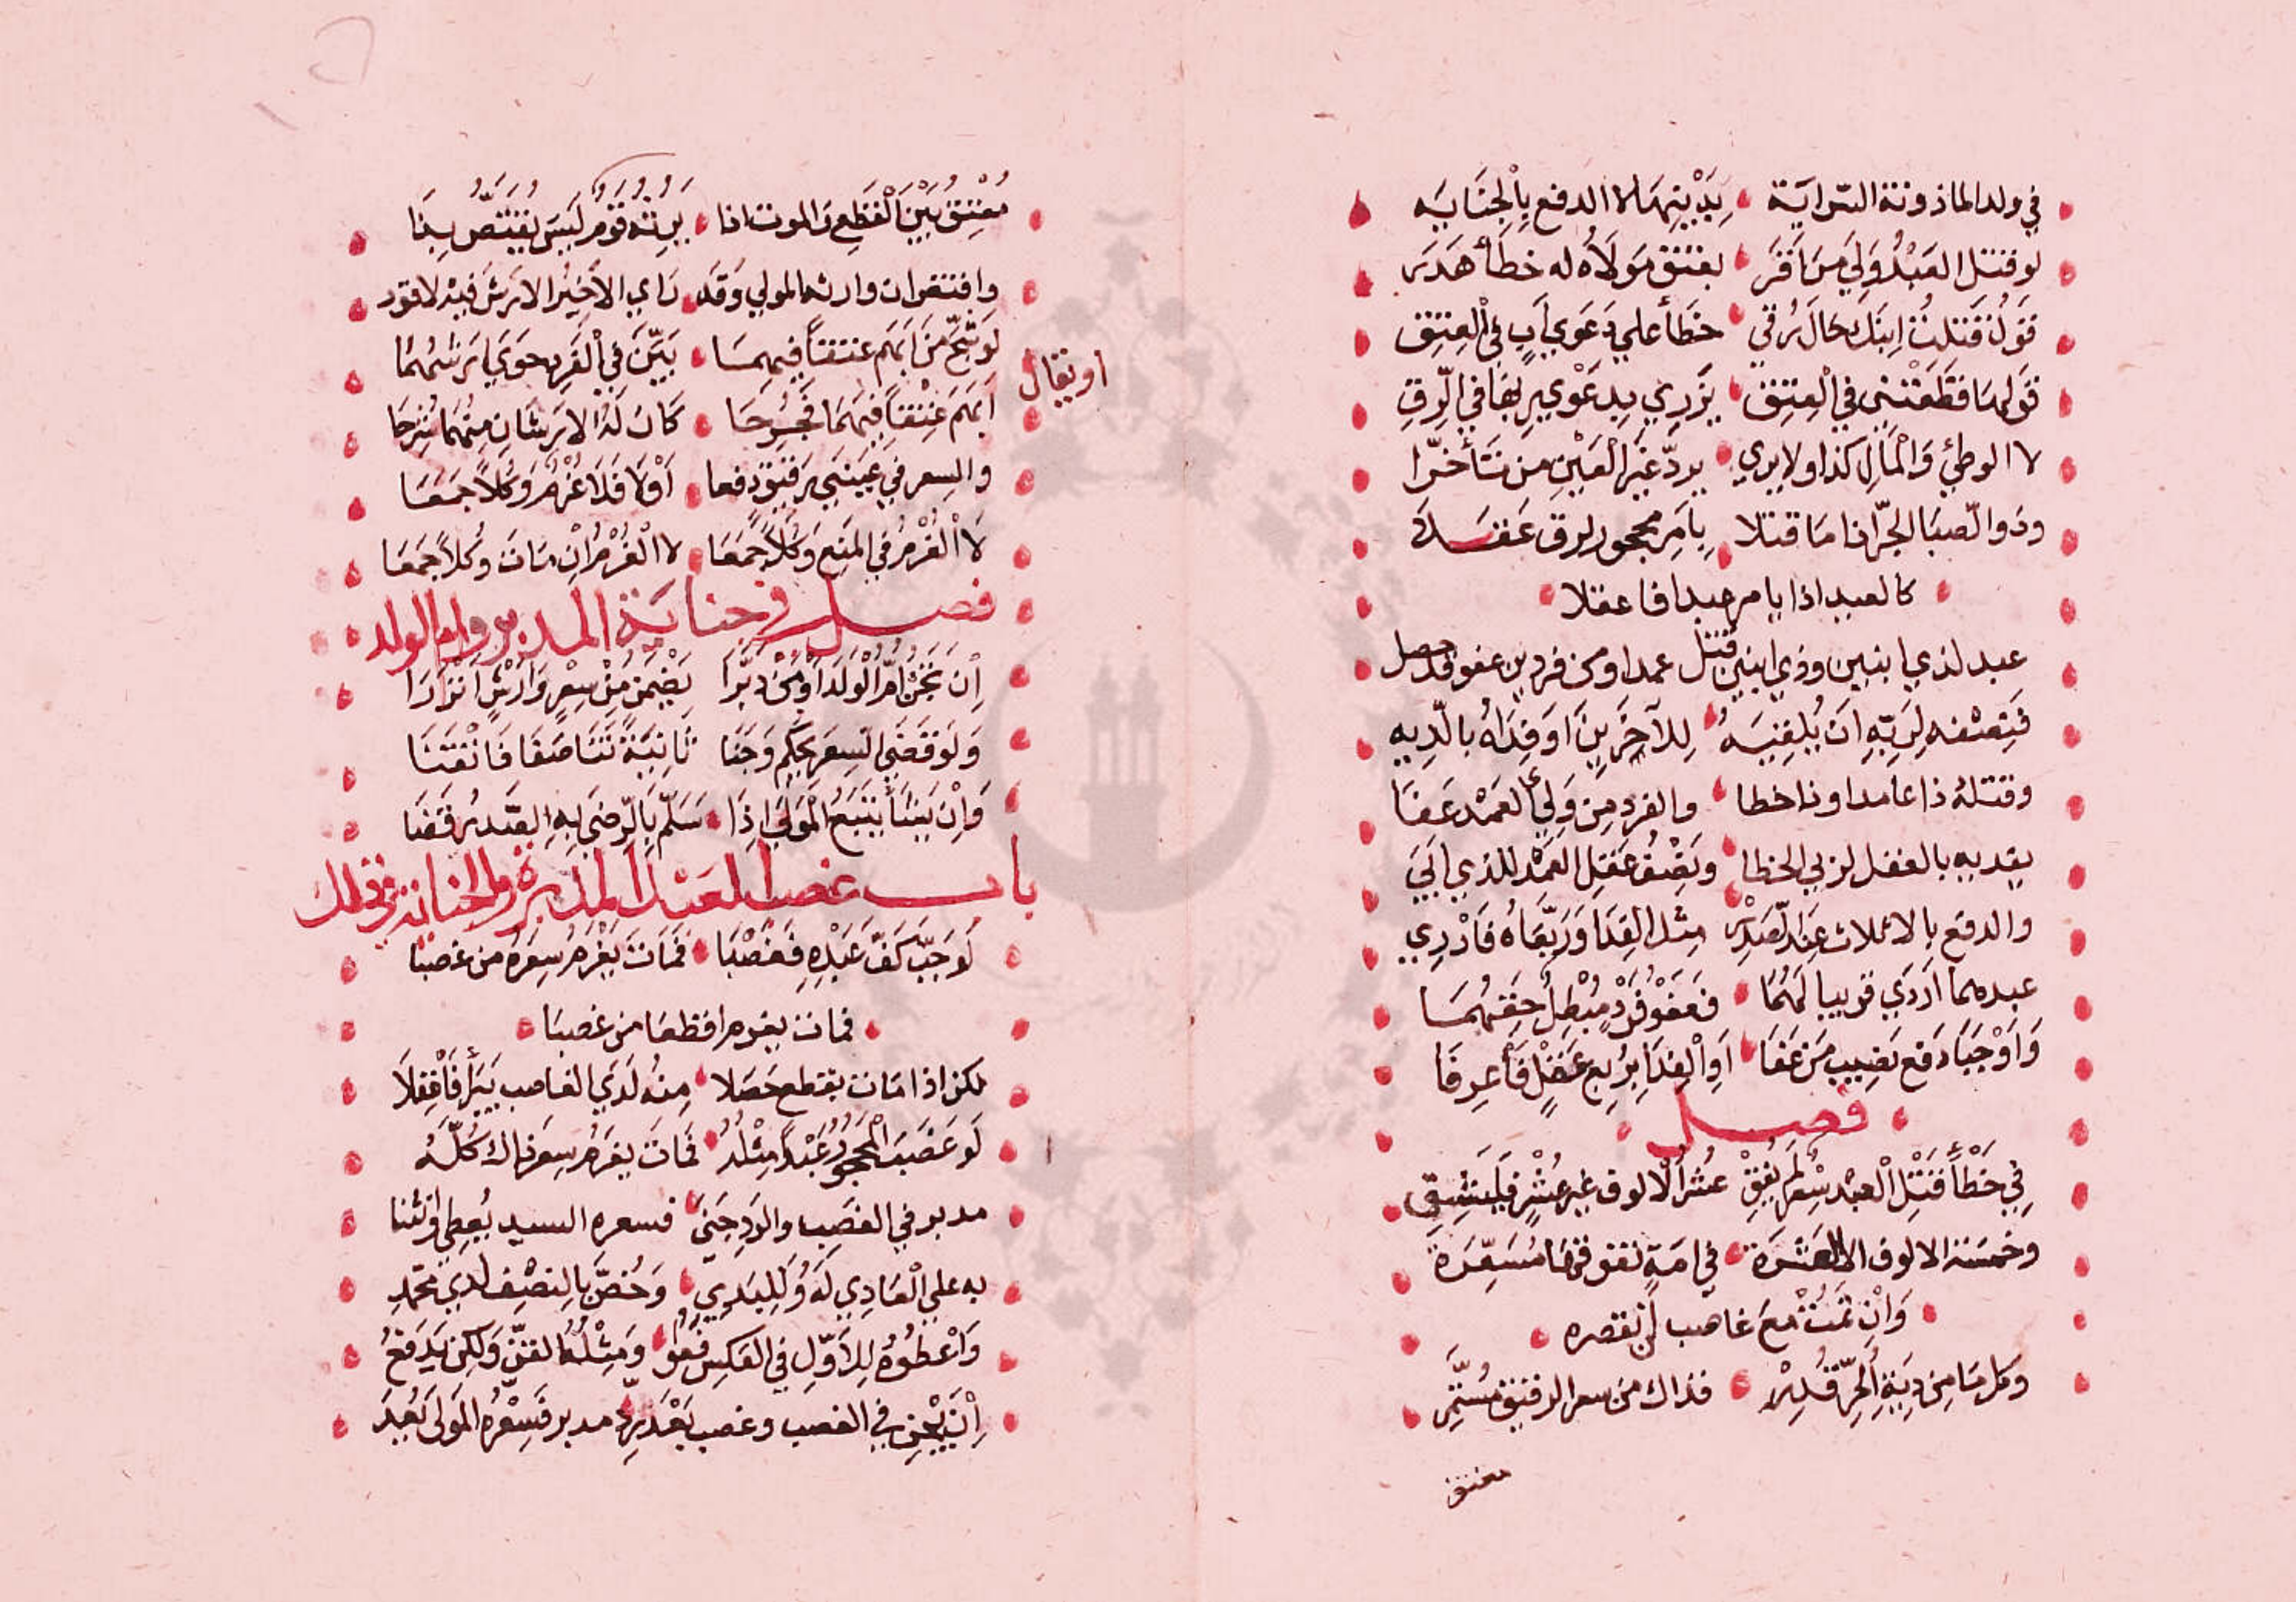 في ولد الماذونة السراية بدينها لا الدفع بالجنايه
لو قتل العبد ولي من اقر بعتق مولاه له خطأ هدر
قول قتلت ابنك حال رقي خطأ علي دعوي اب في العتق
قولها قطعتني في العتق يزري بدعوي ربها في الرق
لا الوطئ والمال كذا ولا يري برد غير العين من تأخرا
وذو الصبا الحر اذا ما قتلا بامر محجور لرق عقله
كالعبد اذا يامر عبدا فاعقلا
عبد لذي ابنين وذي ابنين قتل عمدا ومن فردين عفو قد حصل
فنصفه لربه ان يلفيه للآخرين او فداه بالديه
وقتله ذا عامدا وذا خطا والفرد من ولي العمد عفا
يفديه بالعقل لزبي الخطا ونصف عقل العمد للذي ابي
والدفع بالاثلاث عند الصدر مثل الفدا وربعاه فادري
عبدهما اردي قريبا لهما فعفو فرد مبطل حقهما
واوجبا دفع نصيب من عفا او الفدا بربع عقل فاعرفا
فصل
في خطأ قتل العبد سعر لم يفق عشر الالوف غير عشر فليشق
وخمسة الالوف الا العشرة في امة تفوقها مسعرة
وان تمت مع غاصب لن نقصره
وكل ما من دية الحر قدر فذاك من سعر الرقيق مستمر
معتق
معتق بين القطع والموت اذا يرثه قوم ليس يقتص بذا
وافتقوا ان وارثه المولي وقد راي الاخير الارش فيه لا قود
لو شج من ابهم عتقا فيهما بين في الفرد حوي ارشهما
او يقال
ابهم عتقا فيهما فجرحا كان له الارشان منهما
والسعر في عيني رقيق دفعا او لا فلا غرم وكلا جمعا
لا الغرم في المنع وكلا جمعا لا الغرم ان مات وكلا جمعا
فصل في جناية المدبر وام الولد
ان تجن ام الولد او من دبرا يضمن من سعر وارش انزرا
ولو قضي السعر بحكم وجنا ثانية تناصفا فاتقنا
وان يشأ يتبع المولي اذا سلم بالرضي له القدر قفا
باب غصب العبد المدبر والجناية في ذلك
لو جب كف عبده فغصبا فمات يغرم سعره من غصبا
فمات يغرم اقطعا من غصبا
لكن اذا مات بقطع حصلا منه لدي الغاصب يبرأ فاقفلا
لو غصب المحجور عبدا مثله فمات يغرم سعر ذاك كله
مدبر في الغصب والرد جني فسعره السيد يعطي وانثنا
به علي العادي له وللبدي وخص بالنصف لدي محمد
واعطوه للاول في العكس فعو ومثله القن ولكن يدفع
ان يجن في الغصب وغصب بعد رد مدبر فسعره المولي نفد